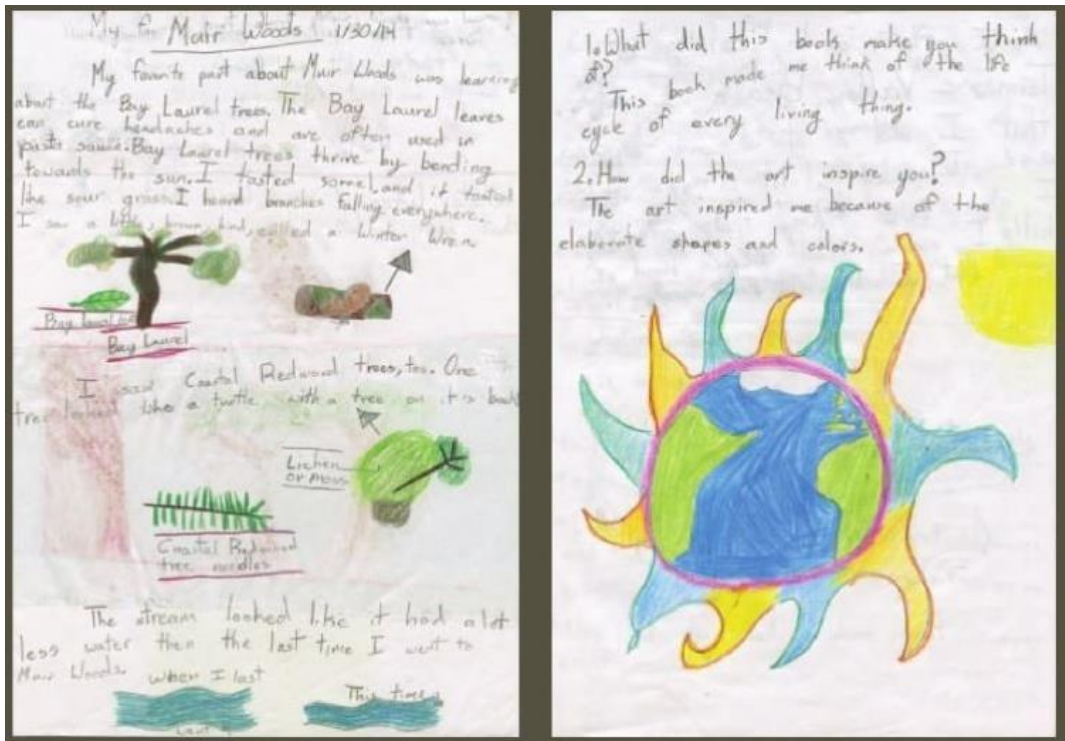 My fa
Muir Woods 1/30/14
My favorite part about Muir Woods was learning
about the Bay Laurel trees. The Bay Laurel leaves
can cure headaches and are often used in
pasta sauce. Bay Laurel trees thrive by bending
towards the sun. I tasted sorrel, and it tasted
like sour grass. I heard branches falling everywhere.
I saw a little, brown bird, called a Winter Wren
Bay laurel
Bay Laurel
I saw Coastal Redwood trees, too. One
tree looked like a turtle with a tree on it's back
Lichen
or moss
Coastal Redwood
tree needles
The stream looked like it had a lot
less water then the last time I went to
Muir Woods.
when I last
went
This time
1. What did this book make you think
of?
This book made me think of the life
cycle of every living thing.
2. How did the art inspire you?
The art inspired me because of the
elaborate shapes and colors.